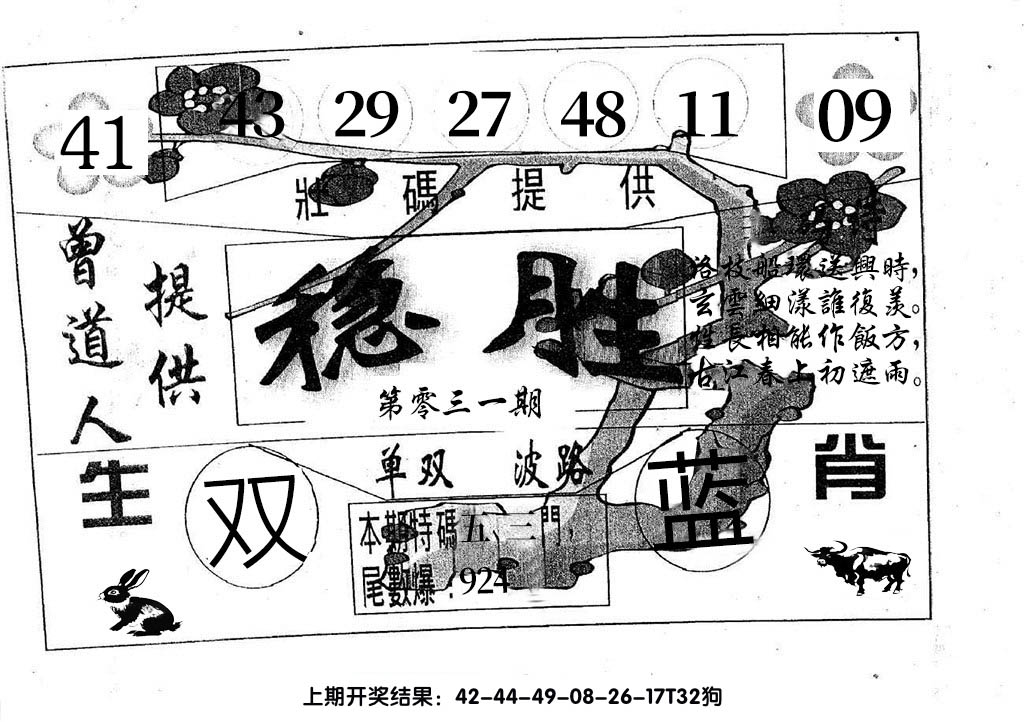 41 43 29 27 48 11 09
壯碼提供
曾道人
提供
稳胜
第零三一期
洛校船環送興時，
玄雲細漾誰復羨。
煙長柏能作飯方，
古江春上初遮雨。
生肖
单双 波路
双 蓝
本期特碼五、三門，
尾數爆：924
上期开奖结果：42-44-49-08-26-17T32狗